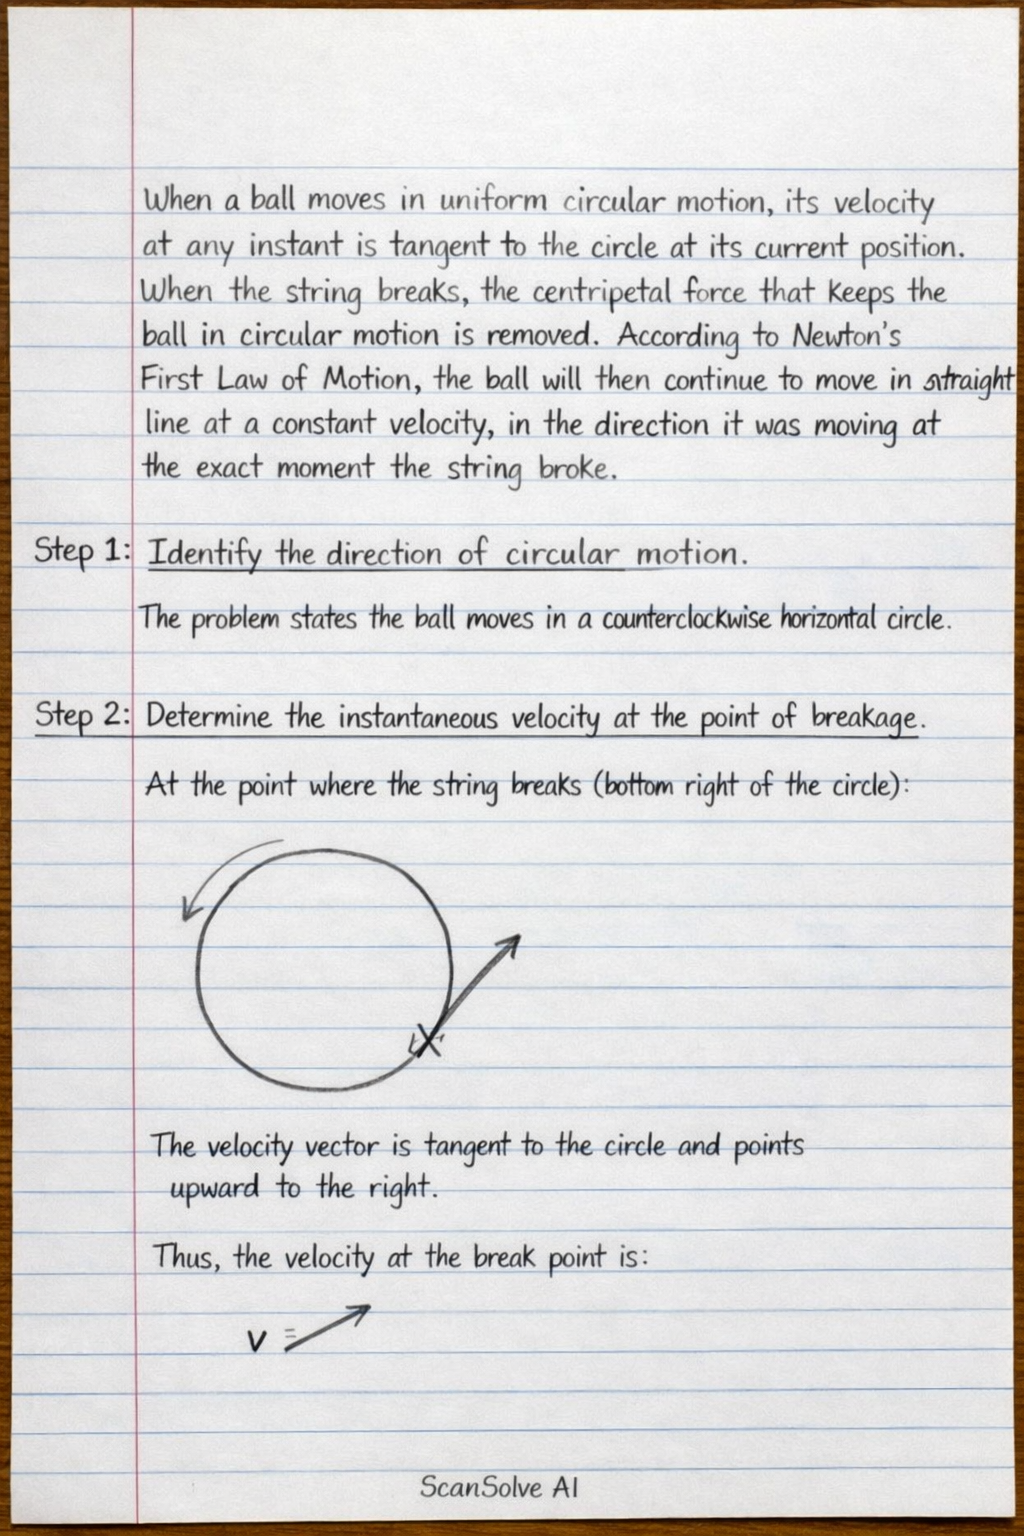 When a ball moves in uniform circular motion, its velocity
at any instant is tangent to the circle at its current position.
When the string breaks, the centripetal force that keeps the
ball in circular motion is removed. According to Newton's
First Law of Motion, the ball will then continue to move in straight
line at a constant velocity, in the direction it was moving at
the exact moment the string broke.
Step 1: Identify the direction of circular motion.
The problem states the ball moves in a counterclockwise horizontal circle.
Step 2: Determine the instantaneous velocity at the point of breakage.
At the point where the string breaks (bottom right of the circle):
The velocity vector is tangent to the circle and points
upward to the right.
Thus, the velocity at the break point is:
v =
ScanSolve AI